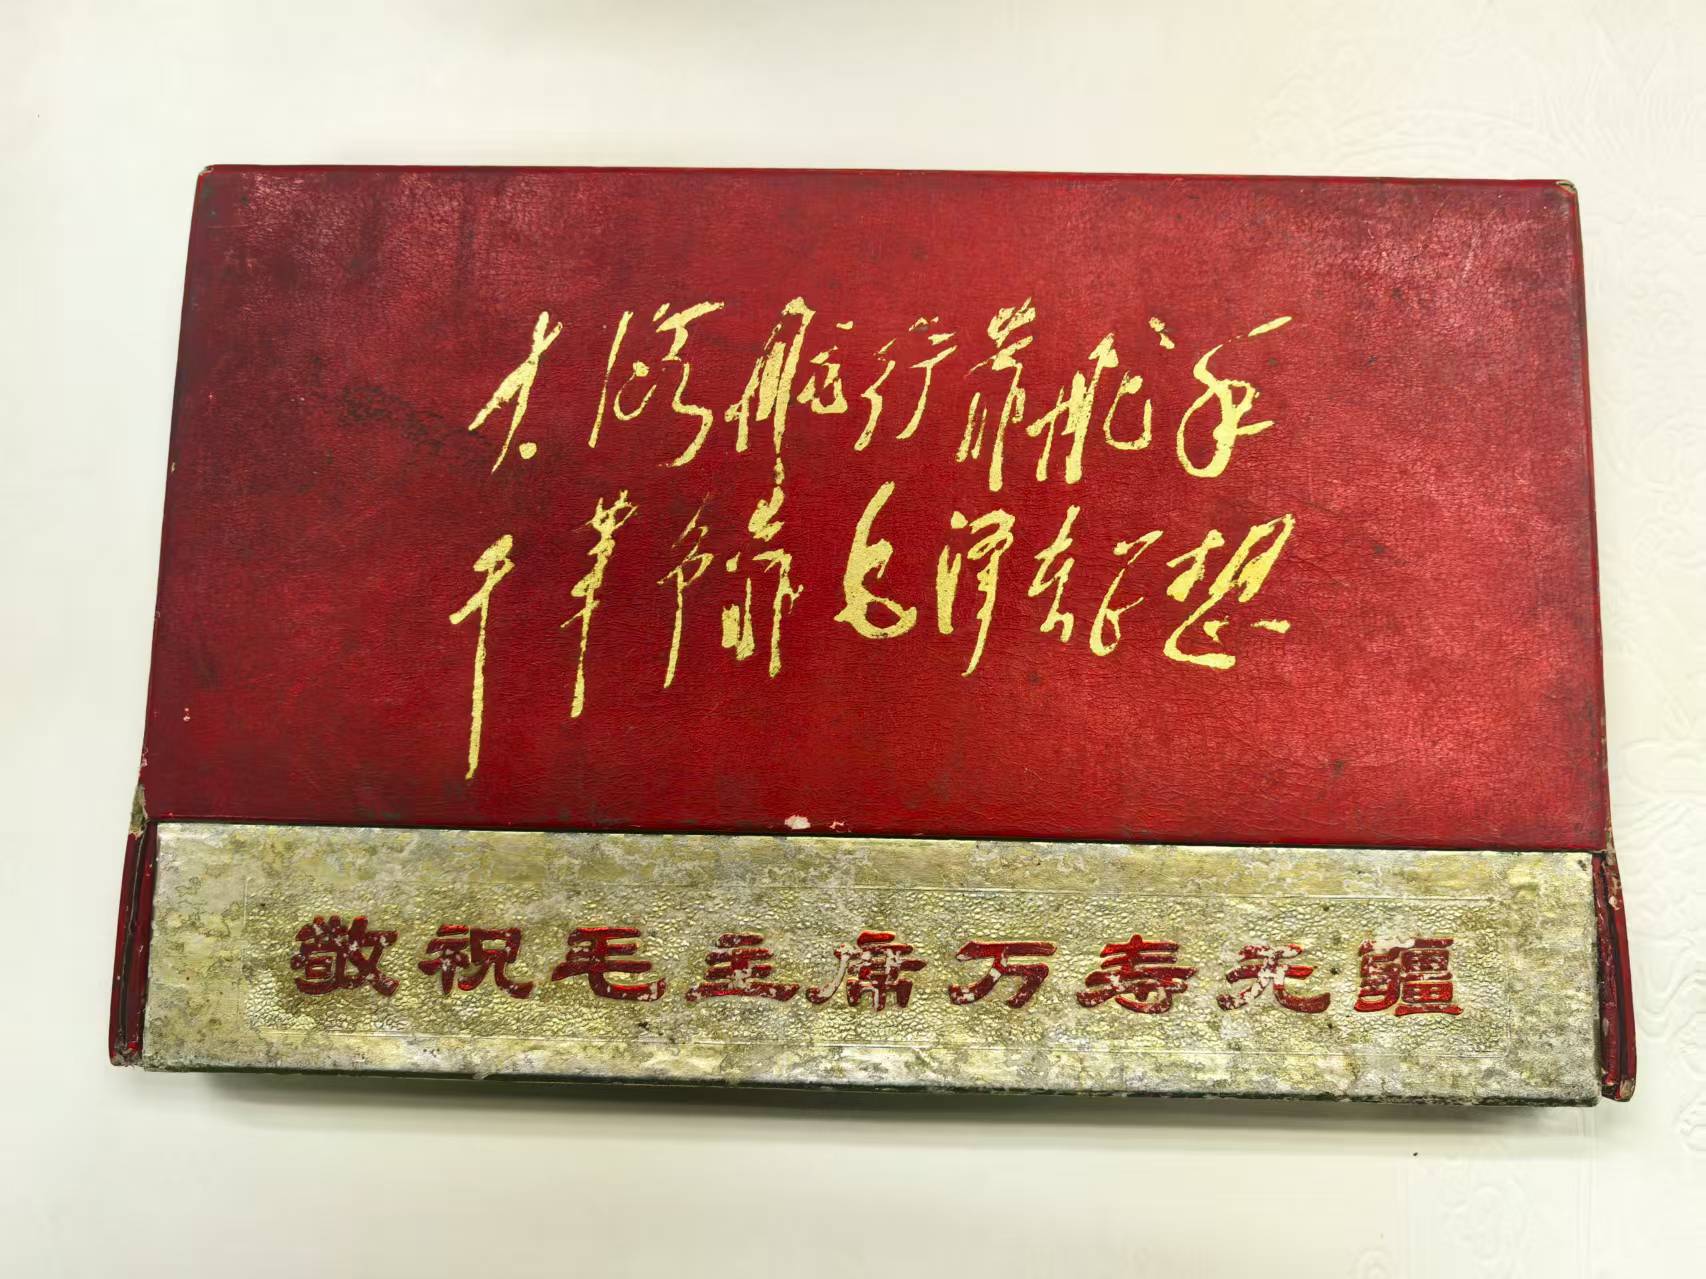 大海航行靠舵手
干革命靠毛泽东思想
敬祝毛主席万寿无疆